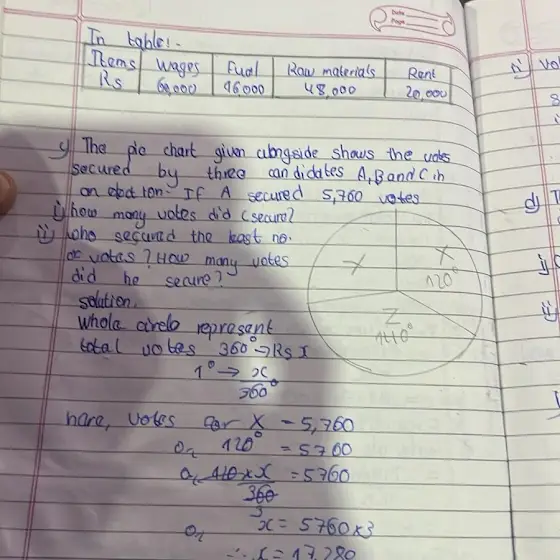 Date
Page
In table:-
Items Wages Fuel Raw materials Rent
Rs 60,000 16,000 48,000 20,000
c) The pie chart given alongside shows the votes
secured by three candidates A, B and C in
an election. If A secured 5,760 votes
i) how many votes did C secure?
ii) who secured the least no.
of votes? How many votes
did he secure?
Y X
120°
Z
140°
solution,
Whole circle represent
total votes 360° → Rs x
1° → x
360°
here, votes for X = 5,760
Or 120° = 5760
Or 120 × x = 5760
360
3
Or x = 5760×3
∴ x = 17,280
b) Vol
d) T
i)
ii)